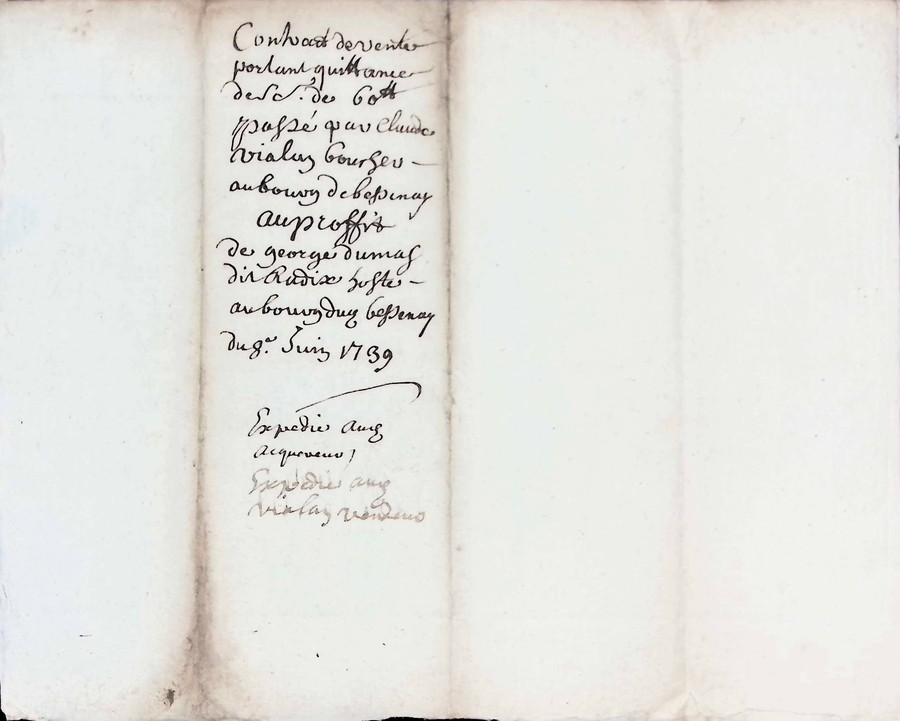 Contract de vente
portant quittance
de la S. de 60tt
passé par Claude
vialay boucher
au bourg de bessenay
au proffit
de george dumas
dit Radix hoste
au bourg dud bessenay
du 8e. Juin 1739
Expedié aud
acquereur
Expédié aud
vialay vendeur